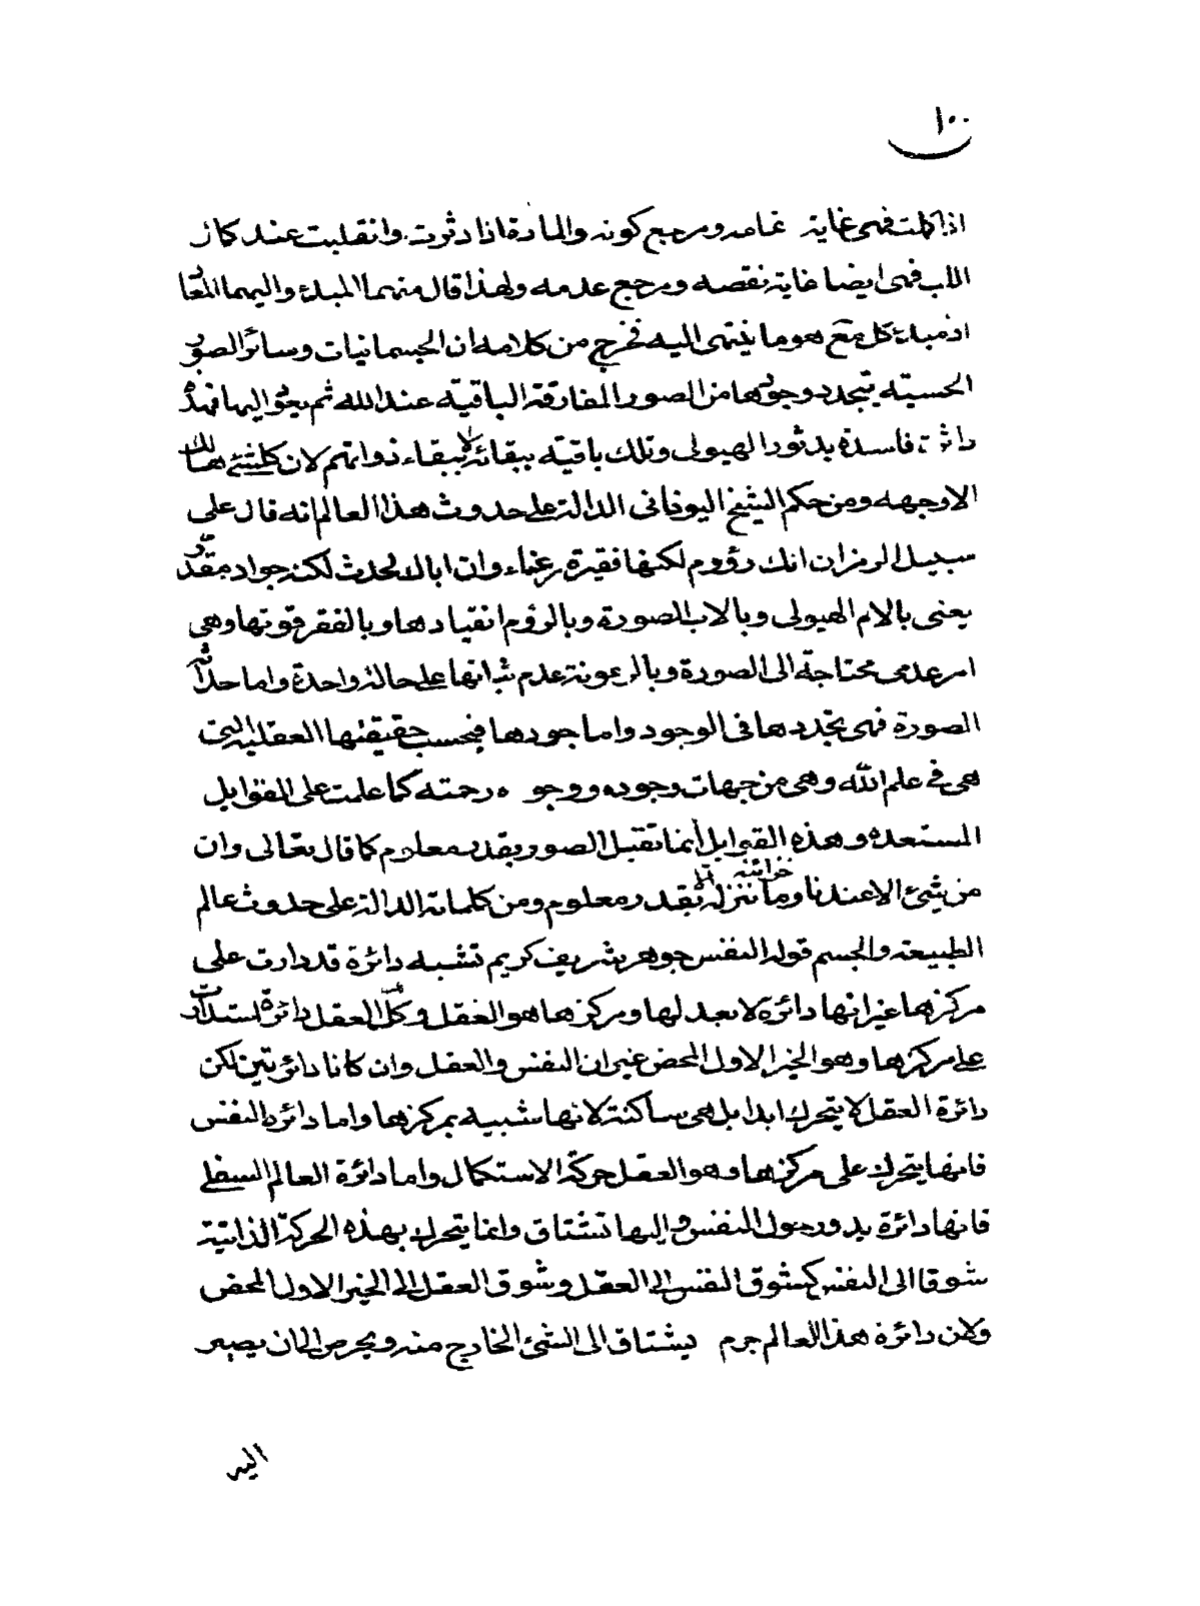 ١٠٠
اذا كملت فهى غاية تمامه ومرجع كونه والمادة اذا دثرت وانقلبت عند كان
اللب فهى ايضا غاية نقصه ومرجع عدمه ولهذا قال منهما المبدء واليهما المعاد
اذ مبدء كل هو ما ينتهى اليه فخرج من كلامه ان الجسمانيات وسائر الصور
الحسيته يتجدد وجودها من الصور المفارقة الباقيته عند الله ثم يعود اليها فهذه
داثرة فاسدة بدثور الهيولى وتلك باقيته ببقائه لا ببقاء ذواتهم لان كلشئ هالك
الا وجهه ومن حكم الشيخ اليونانى الدالة على حدوث هذا العالم انه قال على
سبيل الرمز ان امك رؤوم لكنها فقيرة رعناء وان اباك لحدث لكنه جواد مقدر
يعنى بالام الهيولى وبالاب الصورة وبالرؤم انقيادها وبالفقر قوتها وهى
امر عدمى محتاجة الى الصورة وبالرعونة عدم ثباتها على حالة واحدة واما حداثة
الصورة فهى تجددها فى الوجود واما جودها فبحسب حقيقتها العقلية التى
هى فى علم الله وهى من جهات وجوده ووجوه رحمته كما علمت على القوابل
المستعده وهذه القوابل انما تقبل الصور بقدر معلوم كما قال تعالى وان
من شئ الا عندنا خزائنه وما ننزله الا بقدر معلوم ومن كلماته الدالة على حدوث عالم
الطبيعة والجسم قوله النفس جوهر شريف كريم تشبه دائرة قد دارت على
مركزها غير انها دائرة لا بعد لها ومركزها هو العقل وكذلك العقل دائرة استدارت
على مركزها وهو الخير الاول المحض غير ان النفس والعقل وان كانا دائرتين لكن
دائرة العقل لا يتحرك ابدا بل هى ساكنة لانها شبيه بمركزها واما دائرة النفس
فانها يتحرك على مركزها وهو العقل حركة الاستكمال واما دائرة العالم السفلى
فانها دائرة يدور حول النفس واليها تشتاق وانما يتحرك بهذه الحركة الذاتية
شوقا الى النفس كشوق النفس الى العقل وشوق العقل الى الخير الاول المحض
ولان دائرة هذا العالم جرم يشتاق الى الشئ الخارج منه ويحرص الى ان يصير
اليه